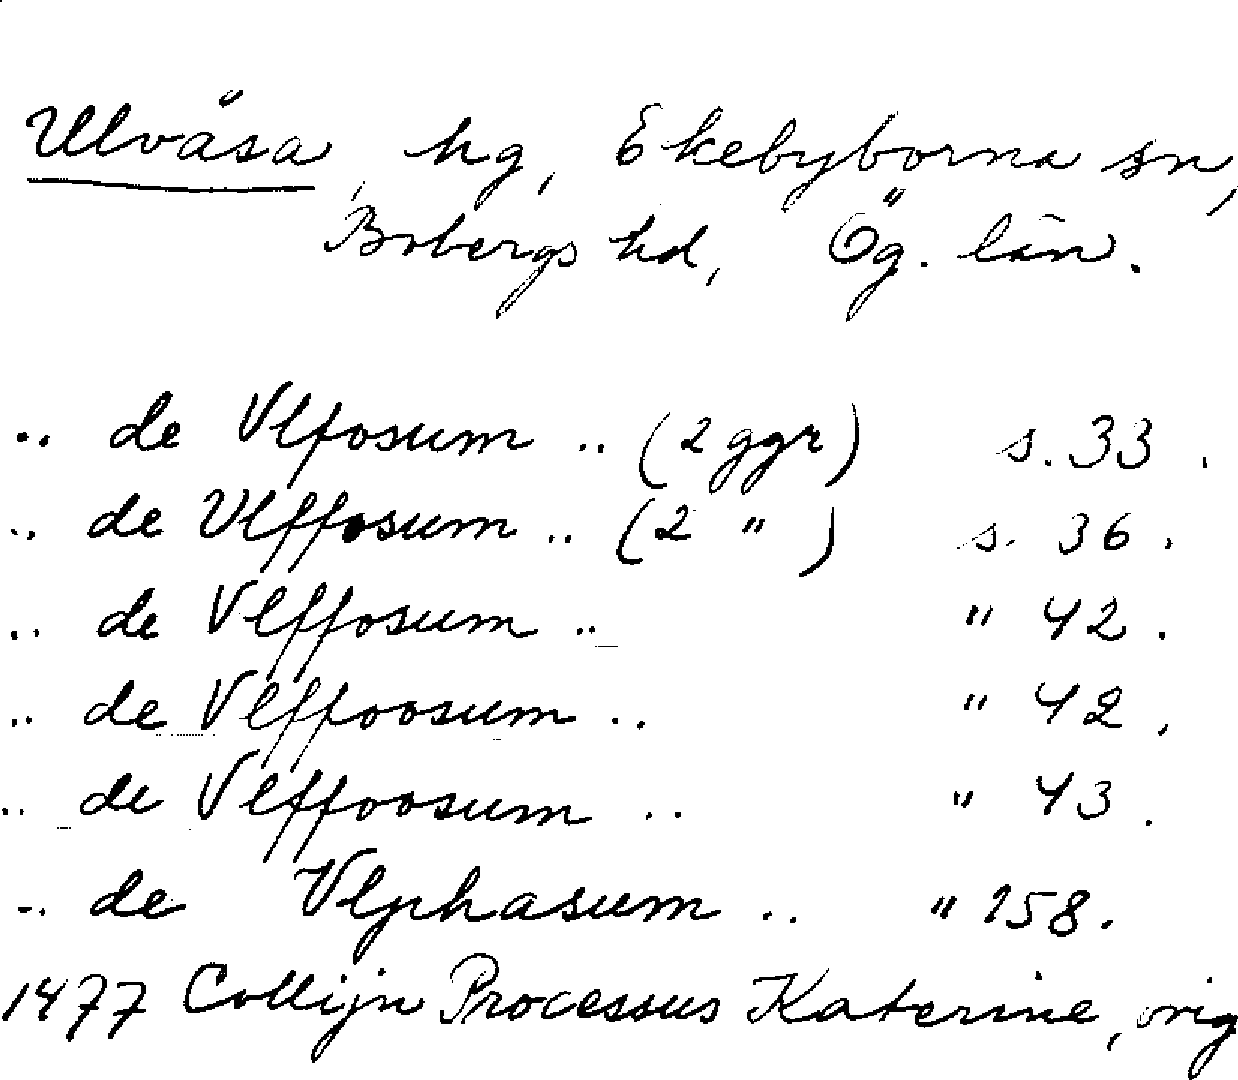 Ulvåsa, hg, Ekebyborna sn,
Bobergs hd, Ög. län.
.. de Vlfosum .. (2 ggr) s. 33.
.. de Vlffosum .. (2 ") s. 36.
.. de Vlffosum .. " 42.
.. de Vlffoosum .. " 42.
.. de Vlffoosum .. " 43.
.. de Vlphasum .. " 158.
1477 Collijn Processus Katerine, orig